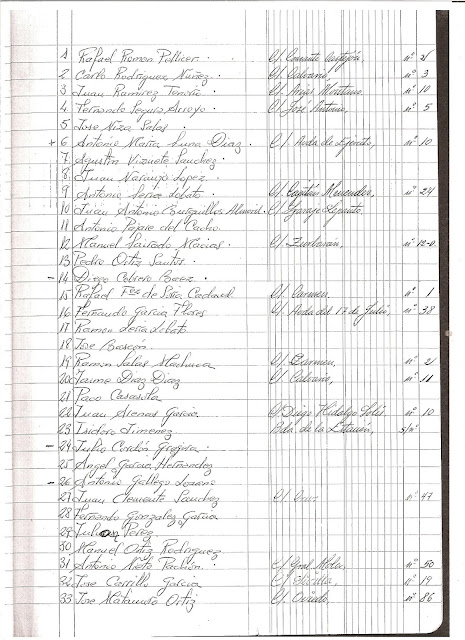 1 Rafael Roman Pellicer. C/. Comante Castejón nº 21
2 Carlo Rodriguez Nuñez. C/. Calvario, nº 3
3 Juan Ramirez Tenorio C/. Arias Montano nº 10
4 Fernando Segura Arroyo. C/. José Antonio, nº 5
5 Jose Niza Salas.
+ 6 Antonio Maria Luna Diaz. C/. Avda de Ejercito, nº 10
7 Agustin Vizuete Sanchez.
8 Juan Naranjo Lopez.
9 Antonio Serra Lobato. C/. Capitán nº 24
10 Juan Antonio Burguillos C/. Ejercito,
11 Antonio Pajare del Cacho
12 Manuel Salvado Macias. C/. Zurbarán, nº 12-
13 Pedro Ortiz Santos.
- 14 Diego Cobrero Baez.
15 Rafael Fez de Soria C/. Carmen, nº 1
16 Fernando Garcia Flores C/. Avda del 18 de Julio, nº 38
17 Ramon Serra Lobato.
18 Jose Bascón.
19 Ramon Salas Machuca C/. Carmen, nº 21
20 Jaime Diaz Diaz C/. Calvario, nº 11
21 Paco Casasola
22 Juan Arenas Garcia C/ Diego Hidalgo Solis nº 10
23 Isidoro Jimenez Bda. de la Estación, s/nº
- 24 Julio Cordón
25 Angel Garcia Hernandez
- 26 Antonio Gallego Lozano
27 Juan Clemente Sanchez C/. nº 47
28 Fernando Gonzalez Garcia
29 Julian Perez.
30 Manuel Ortiz Rodriguez
31 Antonio Nieto Pachón. C/ Gral Mola, nº 50
32 Jose Carrillo Garcia C/. Sicilia, nº 19
33 Jose Matamoro Ortiz C/. Oviedo, nº 86